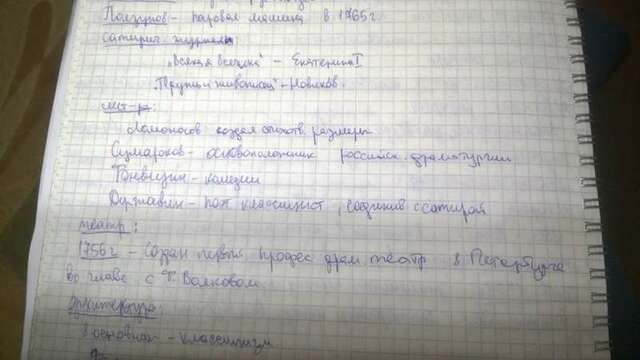 Ползунов - паровая машина в 1765г
сатирич. журналы
"Всякая всячина" - Екатерина II
"Трутень и живописец" - Новиков.
лит-ра:
Ломоносов создал стихотв. размеры
Сумароков - основоположник российск. драматургии
Фонвизин - комедии
Державин - поэт классицист, соединив с сатирой
театр:
1756г - создан первый професс драм театр в Петербурге
во главе с Ф. Волковом.
архитектура:
В основном - классицизм